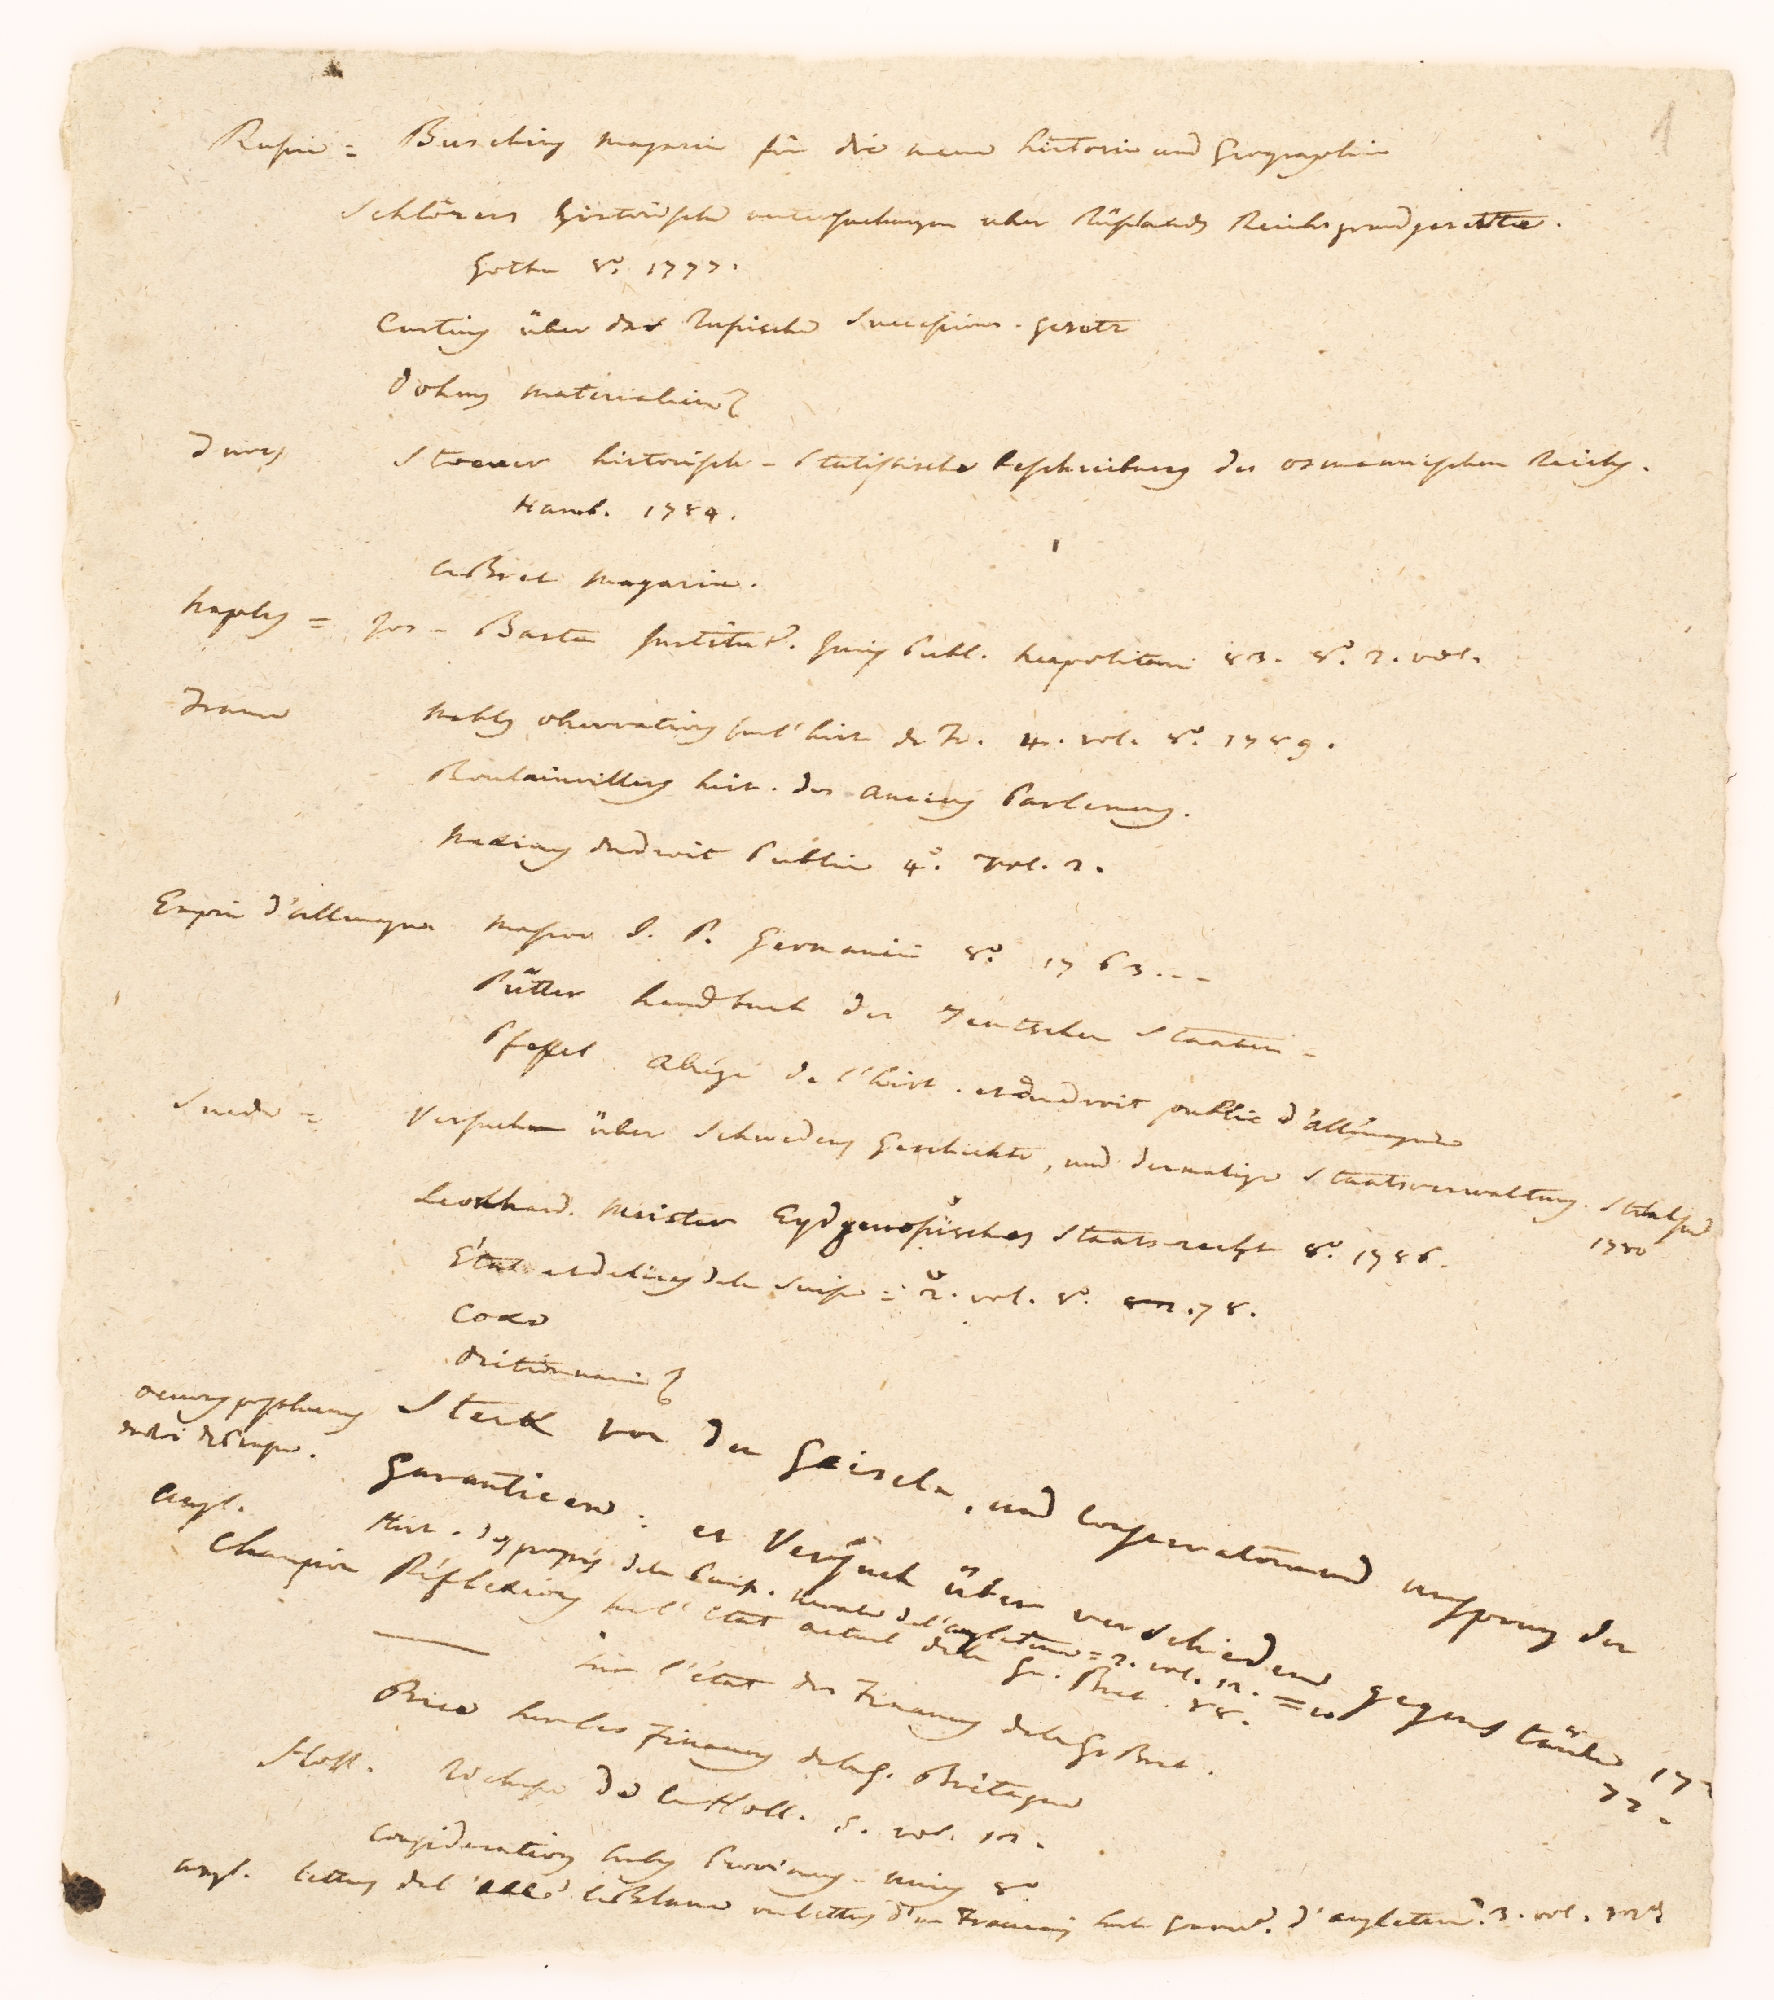 1
Russie = Busching magazin für die neue historie und Geographie
Schlözers historische untersuchungen uber Russlands Reichsgrundgesette.
Gotha 8º. 1777.
Curtius über das Russische Successions-gesetz
Dohms materialien
Turcs Stoever historisch-statistische beschreibung des osmanischen Reichs.
Hamb. 1784.
LeBret magazin.
Naples = Jos - Basta Institut. Juris Publ. neapolitani 83. 8º. 2. vol.
France Mably observations sur l'hist. de Fr. 4. vol. 8º. 1789.
Boulainvilliers hist. des anciens Parlemens.
Maximes du droit Public 4º. Vol. 2.
Empire d'allemagne Mascov J. P. Germanici 8º. 1763...
Pütter handbuch der Teutschen Staaten-
Pfeffel abrégé de l'hist. et du droit public d'allemagne
Suede = Versuch über Schwedens Geschichte, und dermalige Staatsverwaltung Stralsund
1780
Leonhard. Meister Eydgenossisches Staatsrecht 8º. 1786.
État et delices de la Suisse = 2. vol. 8º. 78.
Coxe
dictionnaire
oeuvres posthumes
du Roi de Prusse.
Sterk von der Geiseln, und Conservatoren ursprung der
Garantieen: et Versuch über verschiedene gegenstände 177
72.
angl. Hist. des progrès de la Puiss. navale de l'angleterre = 2. vol. 12. =
Champion Réflexions sur l'état actuel de la Gr. Bret. 88.
—— sur l'état des Finances de la Gr Bret.
Price sur les Finances de la G. Bretagne
Holl. Richesse de la Holl. 5. vol. 12.
Considerations sur les Provinces-unies 8º
angl. lettres de l'abbé leBlanc ou lettres d'un Francois sur le gouvert. d'angleterre. 3. vol. 12º